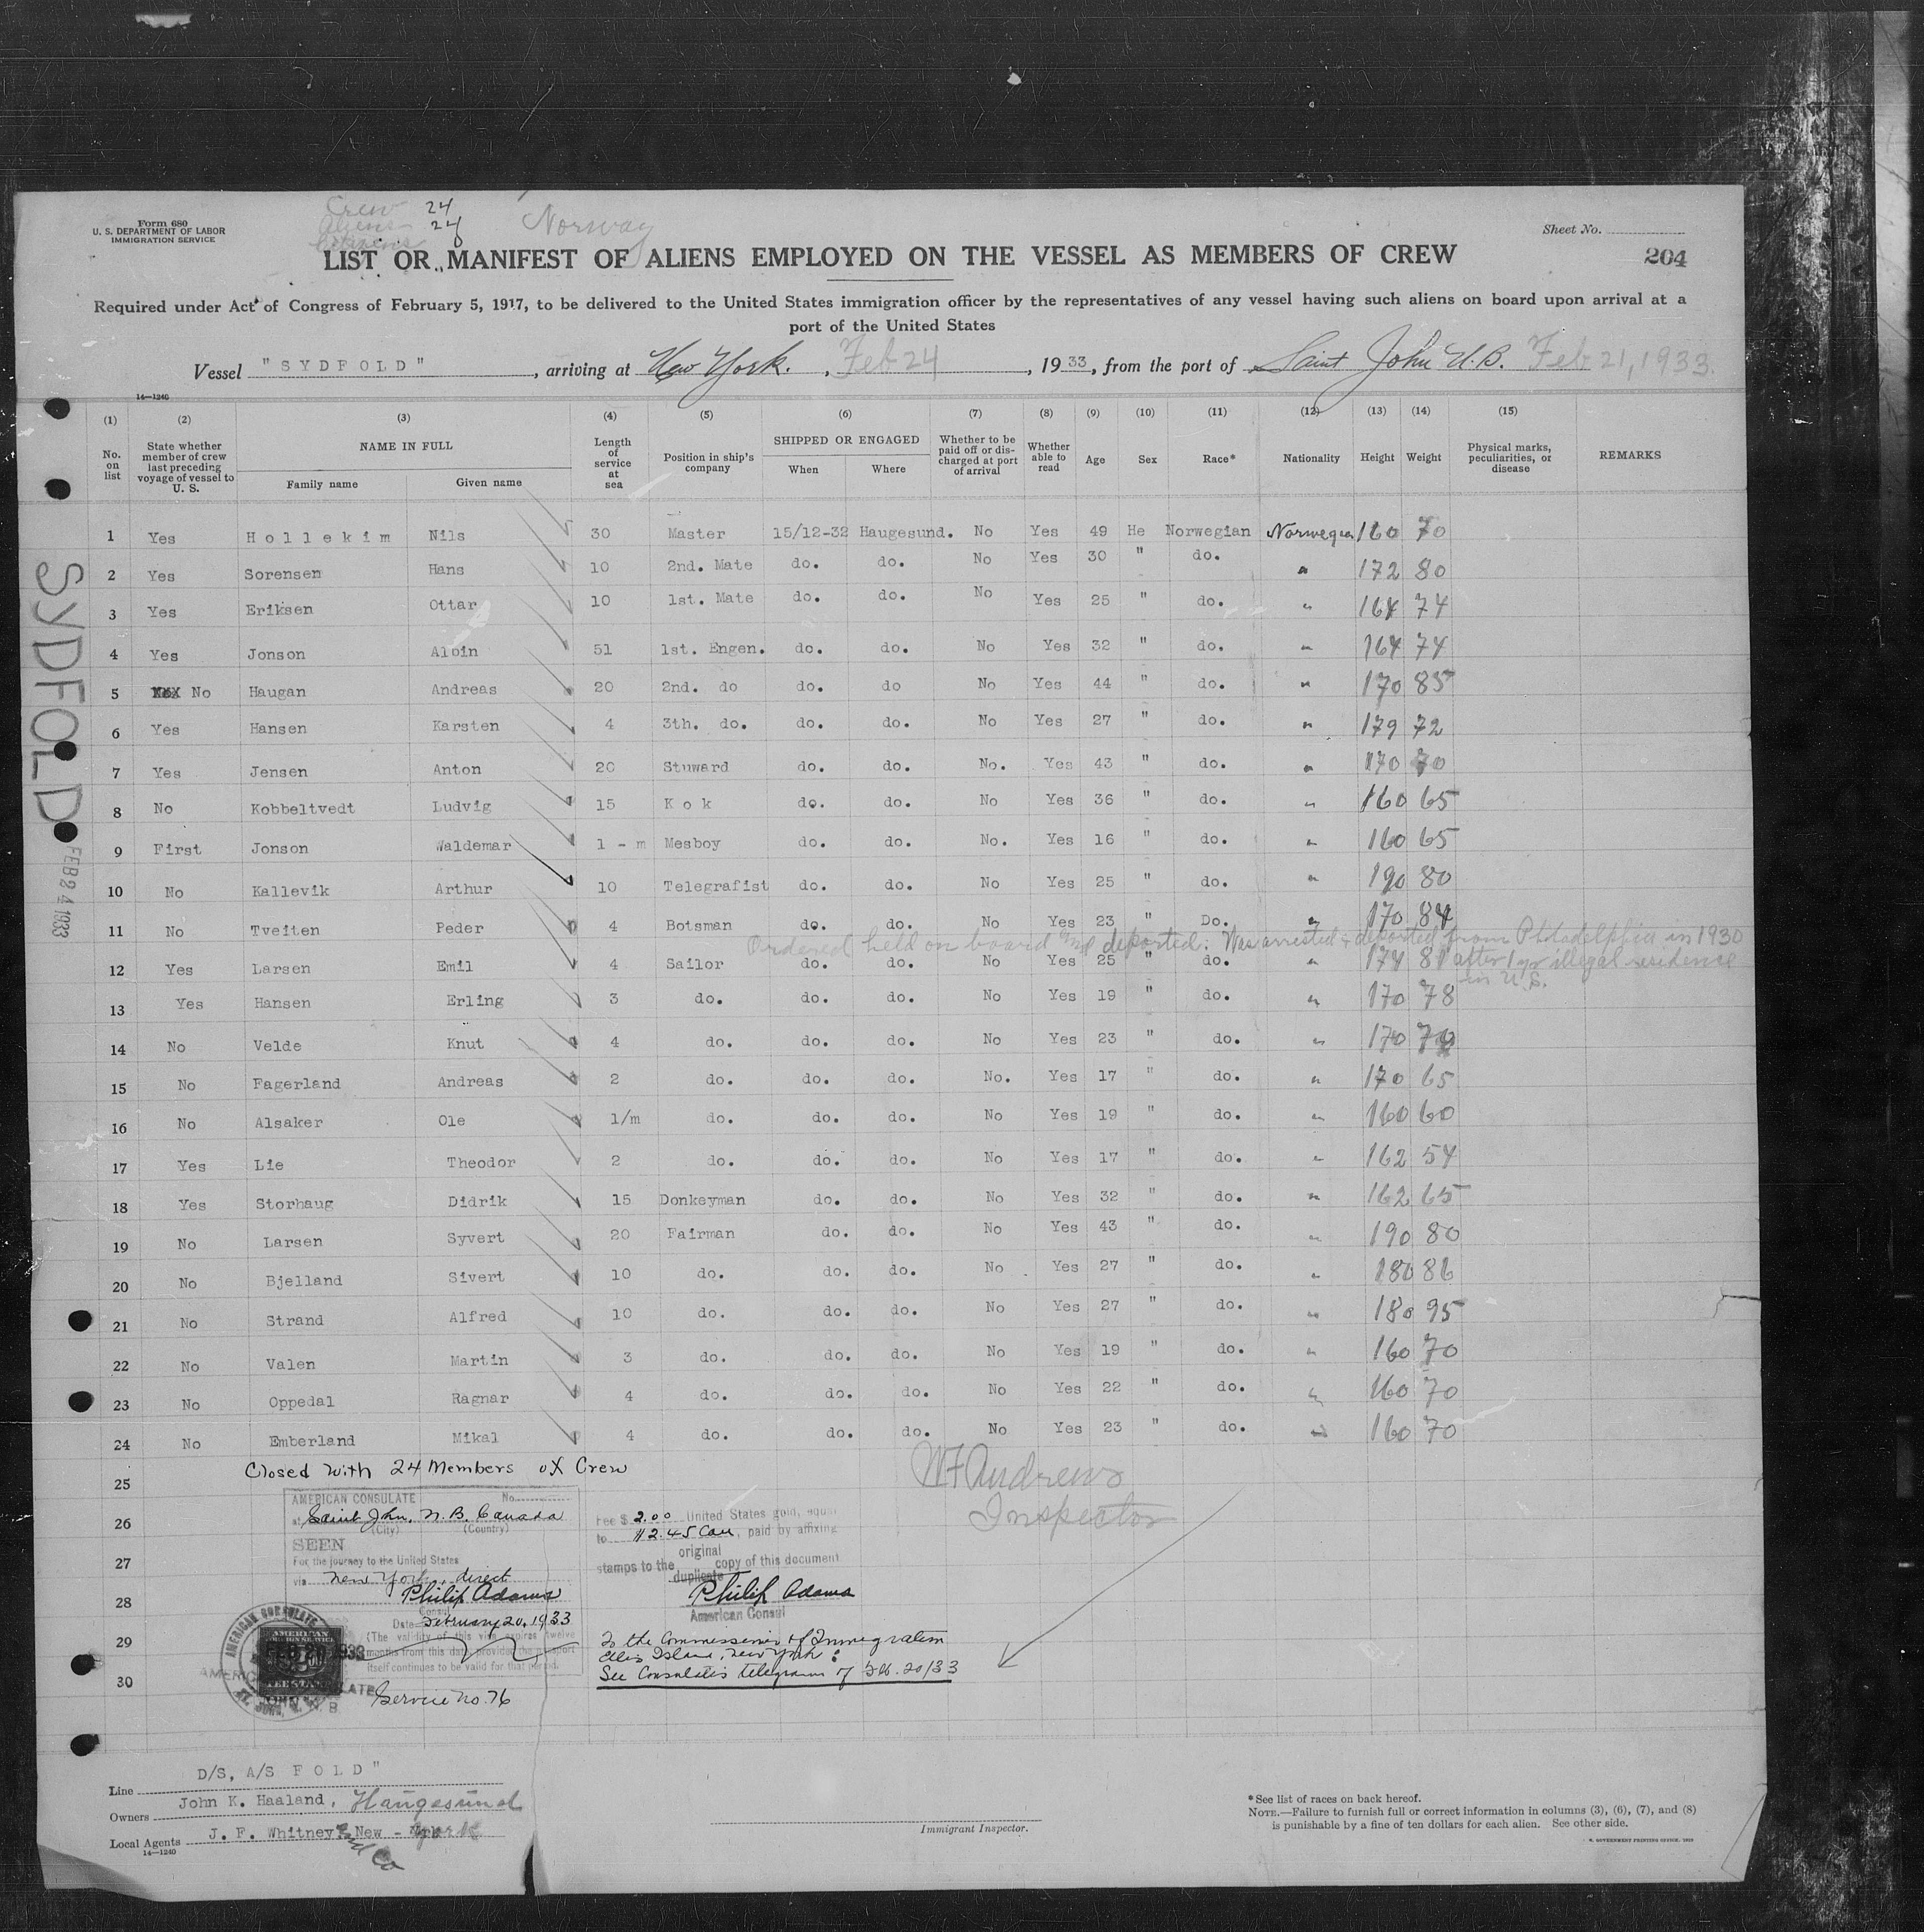 Form 680
U. S. DEPARTMENT OF LABOR
IMMIGRATION SERVICE
Crew 24
Aliens 24
Citizens
Norway
Sheet No.
204
LIST OR MANIFEST OF ALIENS EMPLOYED ON THE VESSEL AS MEMBERS OF CREW
Required under Act of Congress of February 5, 1917, to be delivered to the United States immigration officer by the representatives of any vessel having such aliens on board upon arrival at a
port of the United States
Vessel "SYDFOLD", arriving at New York. , Feb 24, 1933, from the port of Saint John N.B. Feb 21, 1933.
14—1240
(1) (2) (3) (4) (5) (6) (7) (8) (9) (10) (11) (12) (13) (14) (15)
No. on list
State whether member of crew last preceding voyage of vessel to U. S.
NAME IN FULL
Family name Given name
Length of service at sea
Position in ship's company
SHIPPED OR ENGAGED
When Where
Whether to be paid off or discharged at port of arrival
Whether able to read
Age Sex Race* Nationality Height Weight
Physical marks, peculiarities, or disease
REMARKS
1 Yes Hollekim Nils 30 Master 15/12-32 Haugesund. No Yes 49 He Norwegian Norwegian 160 70
2 Yes Sorensen Hans 10 2nd. Mate do. do. No Yes 30 " do. " 172 80
3 Yes Eriksen Ottar 10 1st. Mate do. do. No Yes 25 " do. " 164 74
4 Yes Jonson Albin 51 1st. Engen. do. do. No Yes 32 " do. " 164 74
5 No Haugan Andreas 20 2nd. do do. do No Yes 44 " do. " 170 85
6 Yes Hansen Karsten 4 3th. do. do. do. No Yes 27 " do. " 179 72
7 Yes Jensen Anton 20 Stuward do. do. No. Yes 43 " do. " 170 70
8 No Kobbeltvedt Ludvig 15 Kok do. do. No Yes 36 " do. " 160 65
9 First Jonson Waldemar 1 - m Mesboy do. do. No. Yes 16 " do. " 160 65
10 No Kallevik Arthur 10 Telegrafist do. do. No Yes 25 " do. " 190 80
11 No Tveiten Peder 4 Botsman do. do. No Yes 23 " Do. " 170 84
Ordered held on board and deported. Was arrested & deported from Philadelphia in 1930
after 1 yr illegal residence
in U.S.
12 Yes Larsen Emil 4 Sailor do. do. No Yes 25 " do. " 174 81
13 Yes Hansen Erling 3 do. do. do. No Yes 19 " do. " 170 78
14 No Velde Knut 4 do. do. do. No Yes 23 " do. " 170 70
15 No Fagerland Andreas 2 do. do. do. No. Yes 17 " do. " 170 65
16 No Alsaker Ole 1/m do. do. do. No Yes 19 " do. " 160 60
17 Yes Lie Theodor 2 do. do. do. No Yes 17 " do. " 162 54
18 Yes Storhaug Didrik 15 Donkeyman do. do. No Yes 32 " do. " 162 65
19 No Larsen Syvert 20 Fairman do. do. No Yes 43 " do. " 190 80
20 No Bjelland Sivert 10 do. do. do. No Yes 27 " do. " 180 86
21 No Strand Alfred 10 do. do. do. No Yes 27 " do. " 180 95
22 No Valen Martin 3 do. do. do. No Yes 19 " do. " 160 70
23 No Oppedal Ragnar 4 do. do. do. No Yes 22 " do. " 160 70
24 No Emberland Mikal 4 do. do. do. No Yes 23 " do. " 160 70
25
26
27
28
29
30
Closed with 24 Members of Crew
W F Andrews
Inspector
AMERICAN CONSULATE No.
at Saint John, N.B. Canada
(City) (Country)
SEEN
For the journey to the United States
via New York, direct
Philip Adams
Consul
Date February 20, 1933
(The validity of this visa expires twelve
months from this date provided the passport
itself continues to be valid for that period.
Service No. 76
Fee $ 2.00 United States gold, equal
to $2.45 Can, paid by affixing
original
stamps to the copy of this document
duplicate
Philip Adams
American Consul
To the Commissioner of Immigration
Ellis Island, New York:
See Consulate's telegram of Feb. 20/33
SYDFOLD
FEB 24 1933
Line D/S, A/S FOLD"
Owners John K. Haaland, Haugesund
Local Agents J. F. Whitney and Co New - York
14—1240
Immigrant Inspector.
*See list of races on back hereof.
NOTE.—Failure to furnish full or correct information in columns (3), (6), (7), and (8)
is punishable by a fine of ten dollars for each alien. See other side.